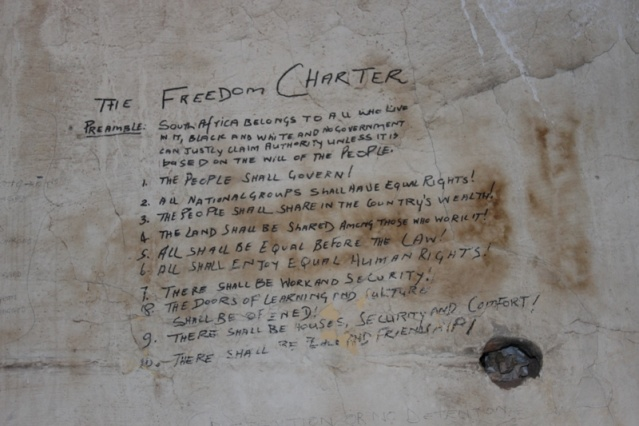 THE FREEDOM CHARTER
PREAMBLE: SOUTH AFRICA BELONGS TO ALL WHO LIVE
IN IT, BLACK AND WHITE AND NO GOVERNMENT
CAN JUSTLY CLAIM AUTHORITY UNLESS IT IS
BASED ON THE WILL OF THE PEOPLE.
1. THE PEOPLE SHALL GOVERN!
2. ALL NATIONAL GROUPS SHALL HAVE EQUAL RIGHTS!
3. THE PEOPLE SHALL SHARE IN THE COUNTRY'S WEALTH!
4. THE LAND SHALL BE SHARED AMONG THOSE WHO WORK IT!
5. ALL SHALL BE EQUAL BEFORE THE LAW!
6. ALL SHALL ENJOY EQUAL HUMAN RIGHTS!
7. THERE SHALL BE WORK AND SECURITY!
8. THE DOORS OF LEARNING AND CULTURE
SHALL BE OPENED!
9. THERE SHALL BE HOUSES, SECURITY AND COMFORT!
10. THERE SHALL BE AND FRIENDSHIP!
DETENTION